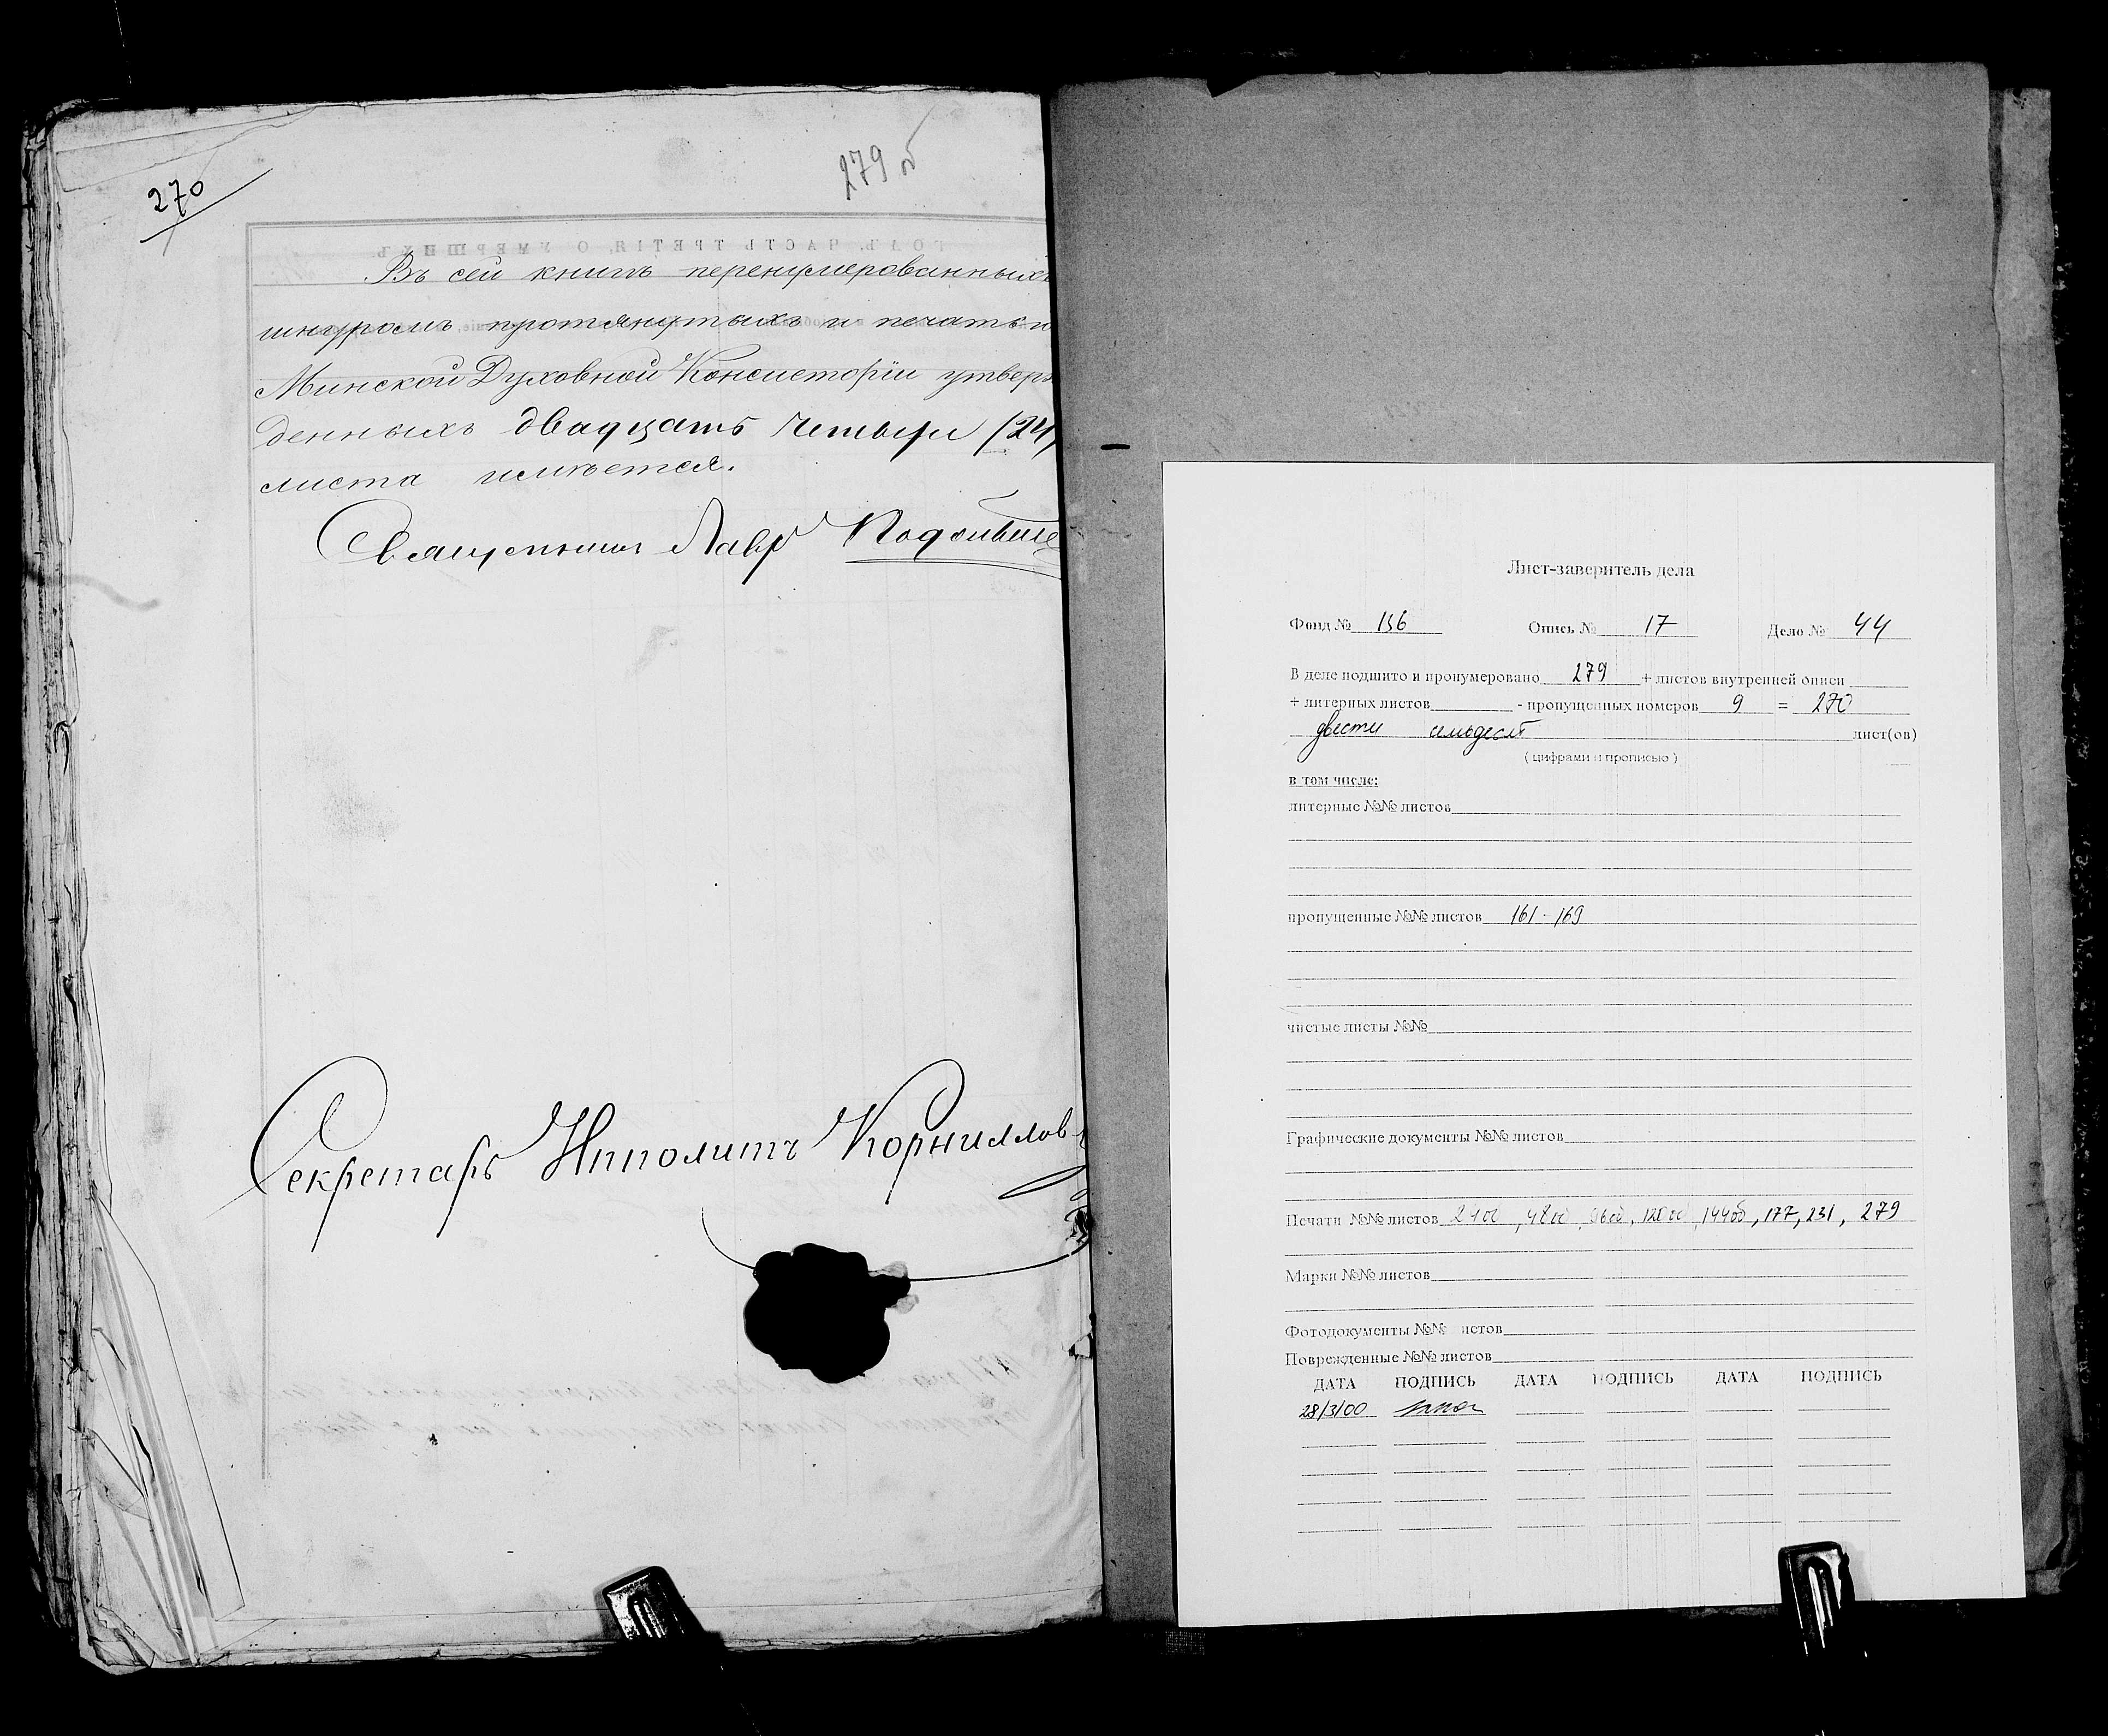 270
279 об
Въ сей книгѣ перенумерованныхъ
шнуромъ протянутыхъ и печатью
Минской Духовной Консисторіи утверж
денныхъ двадцать четыре (24)
листа имѣется.
Священникъ Лавр
Секретарь Ипполитъ Корниллов
Лист-заверитель дела
Фонд № 136 Опись № 17 Дело № 44
В деле подшито и пронумеровано 279 + листов внутренней описи
+ литерных листов - пропущенных номеров 9 = 270
двести семьдесят лист(ов)
( цифрами и прописью )
в том числе:
литерные №№ листов
пропущенные №№ листов 161-169
чистые листы №№
Графические документы №№ листов
Печати №№ листов 24об, 48об, 96об, 120об, 144об, 177, 231, 279
Марки №№ листов
Фотодокументы №№ листов
Поврежденные №№ листов
ДАТА ПОДПИСЬ ДАТА ПОДПИСЬ ДАТА ПОДПИСЬ
28/3/00